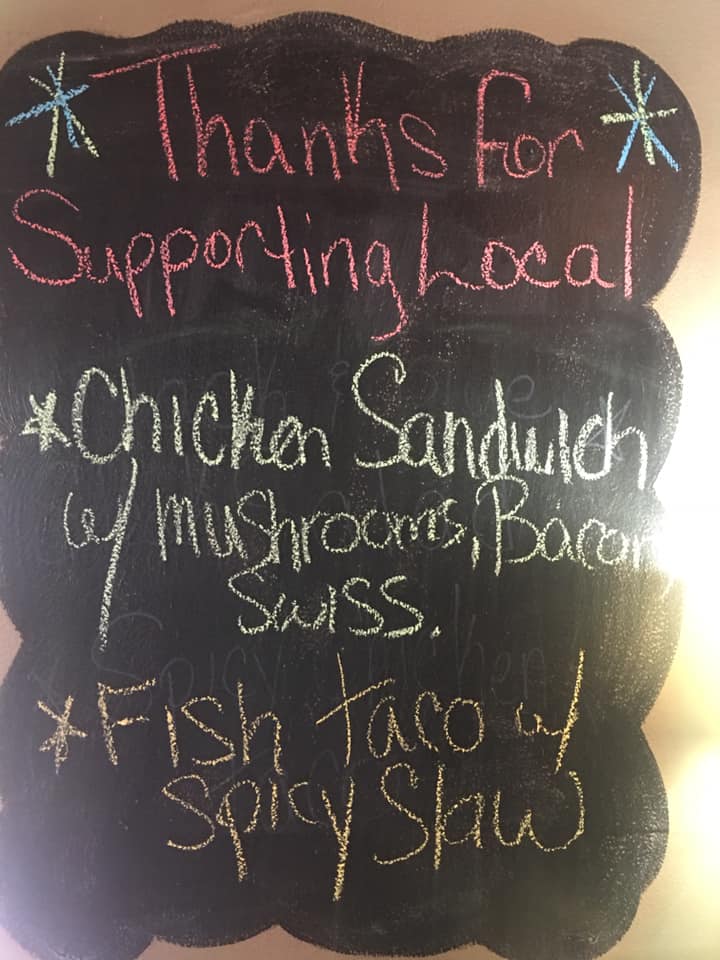 Thanks for
Supporting Local
*Chicken Sandwich
w/ mushrooms, Bacon,
Swiss.
*Fish taco w/
Spicy Slaw